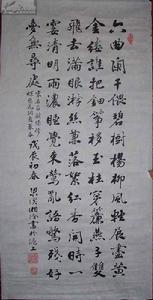 六曲闌干偎碧樹楊柳風輕展盡黃
金縷誰把鈿箏移玉柱穿簾燕子雙
飛去滿眼游絲兼落絮紅杏開時一
霎清明雨濃睡覺來鶯亂語驚殘好
夢無尋處 戊辰初春